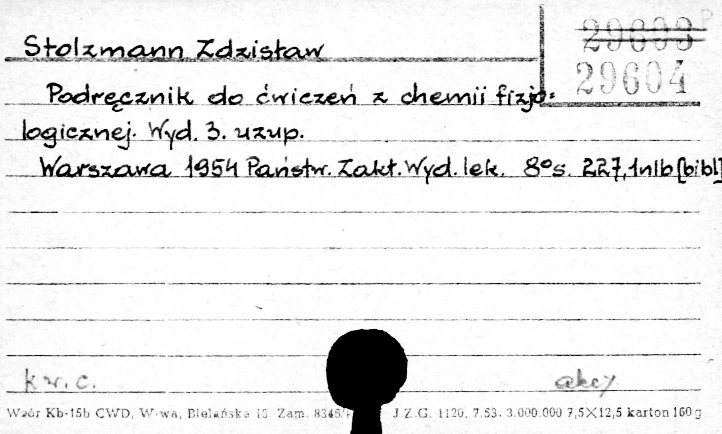 Stolzmann Zdzisław
29603
29604
Podręcznik do ćwiczeń z chemii fizjo=
logicznej. Wyd. 3. uzup.
Warszawa 1954 Państw. Zakt. Wyd. lek. 8° s. 227, 1nlb [bibl]
k w. c.
akc
Wzór Kb-15b CWD, W-wa, Bielańska Zam. 8346/ J.Z.G. 1120, 7.53. 3.000.000 7,5×12,5 karton 160 g